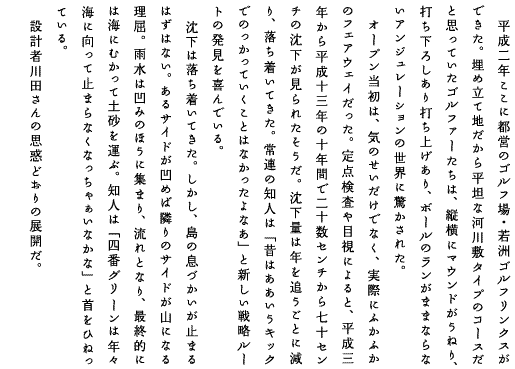 平成二年ここに都営のゴルフ場・若洲ゴルフリンクスが
できた。埋め立て地だから平坦な河川敷タイプのコースだ
と思っていたゴルファーたちは、縦横にマウンドがうねり、
打ち下ろしあり打ち上げあり、ボールのランがままならな
いアンジュレーションの世界に驚かされた。
オープン当初は、気のせいだけでなく、実際にふかふか
のフェアウェイだった。定点検査や目視によると、平成三
年から平成十三年の十年間で二十数センチから七十セン
チの沈下が見られたそうだ。沈下量は年を追うごとに減
り、落ち着いてきた。常連の知人は「昔はああいうキック
でのっかっていくことはなかったよなあ」と新しい戦略ルー
トの発見を喜んでいる。
沈下は落ち着いてきた。しかし、島の息づかいが止まる
はずはない。あるサイドが凹めば隣りのサイドが山になる
理屈。雨水は凹みのほうに集まり、流れとなり、最終的に
は海にむかって土砂を運ぶ。知人は「四番グリーンは年々
海に向って止まらなくなっちゃぁいなかな」と首をひねっ
ている。
設計者川田さんの思惑どおりの展開だ。